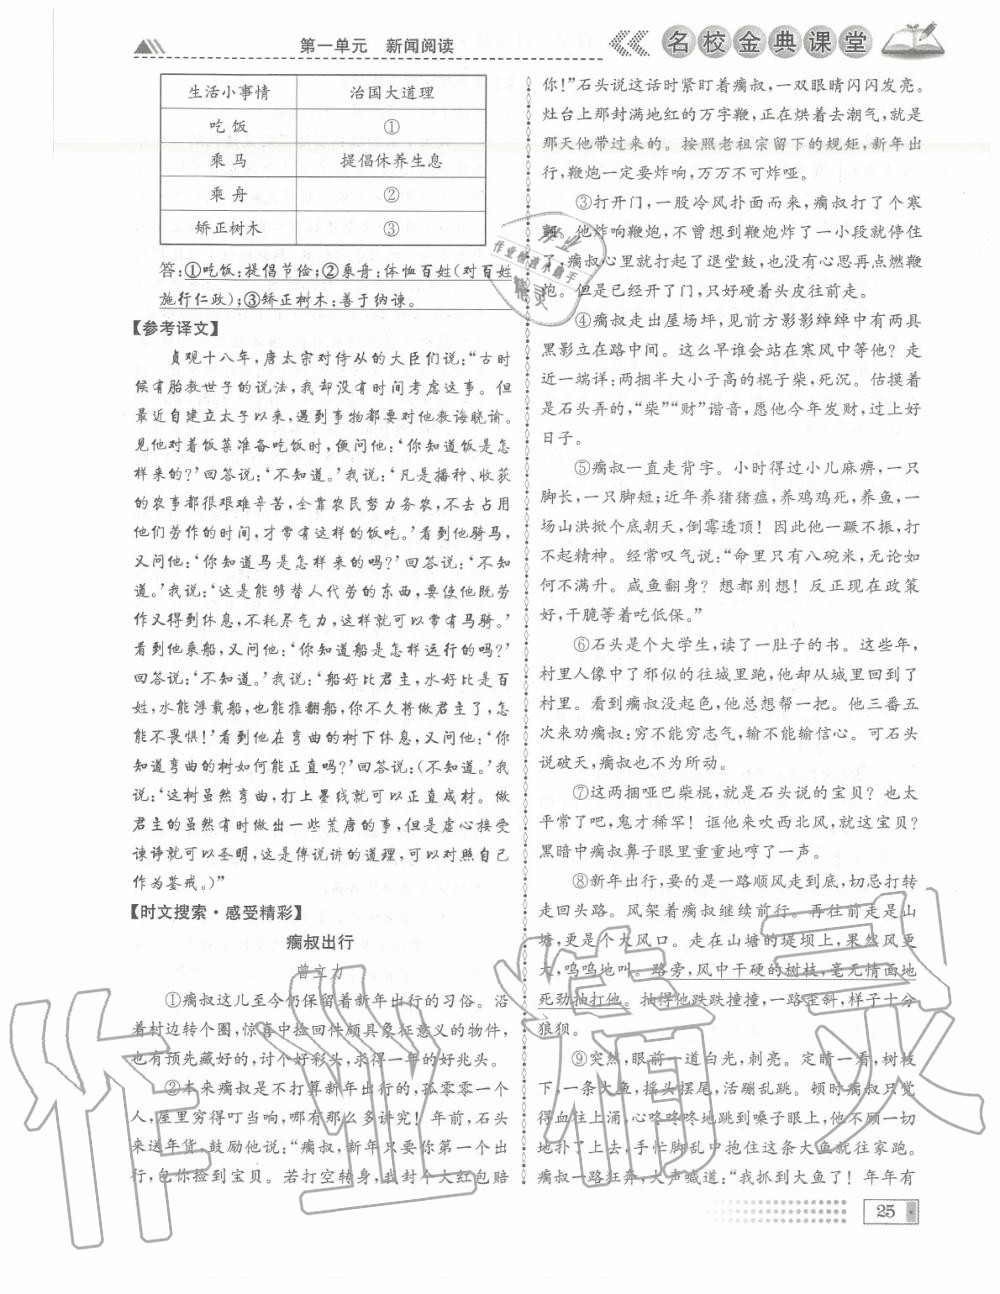 第一单元　新闻阅读
名校金典课堂
生活小事情　治国大道理
吃 饭　①
乘 马　提倡休养生息
乘 舟　②
矫正树木　③
答:①吃饭:提倡节俭;②乘舟:体恤百姓(对百姓
施行仁政);③矫正树木:善于纳谏。
【参考译文】
贞观十八年,唐太宗对侍从的大臣们说:“古时
候有胎教世子的说法,我却没有时间考虑这事。但
最近自建立太子以来,遇到事物都要对他教诲晓谕。
见他对着饭菜准备吃饭时,便问他:‘你知道饭是怎
样来的?’回答说:‘不知道。’我说:‘凡是播种、收获
的农事都很艰难辛苦,全靠农民努力务农,不去占用
他们劳作的时间,才常有这样的饭吃。’看到他骑马,
又问他:‘你知道马是怎样来的吗?’回答说:‘不知
道。’我说:‘这是能够替人代劳的东西,要使他既劳
作又得到休息,不耗尽气力,这样就可以常有马骑。’
看到他乘船,又问他:‘你知道船是怎样运行的吗?’
回答说:‘不知道。’我说:‘船好比君主,水好比是百
姓,水能浮载船,也能推翻船,你不久将做君主了,怎
能不畏惧!’看到他在弯曲的树下休息,又问他:‘你
知道弯曲的树如何能正直吗?’回答说:(不知道。’我
说:‘这树虽然弯曲,打上墨线就可以正直成材。做
君主的虽然有时做出一些荒唐的事,但是虚心接受
谏诤就可以圣明,这是傅说讲的道理,可以对照自己
作为鉴戒。)”
【时文搜索·感受精彩】
瘸叔出行
曾立力
①瘸叔这儿至今仍保留着新年出行的习俗。沿
着村边转个圈,惊喜中捡回件颇具象征意义的物件,
也有预先藏好的,讨个好彩头,求得一年的好兆头。
②本来瘸叔是不打算新年出行的,孤零零一个
人,屋里穷得叮当响,哪有那么多讲究!年前,石头
来送年货,鼓励他说:“瘸叔,新年只要你第一个出
行,包你捡到宝贝。若打空转身,我封个大红包赔
你!”石头说这话时紧盯着瘸叔,一双眼睛闪闪发亮。
灶台上那封满地红的万字鞭,正在烘着去潮气,就是
那天他带过来的。按照老祖宗留下的规矩,新年出
行,鞭炮一定要炸响,万万不可炸哑。
③打开门,一股冷风扑面而来,瘸叔打了个寒
噤。他炸响鞭炮,不曾想到鞭炮炸了一小段就停住
了,瘸叔心里就打起了退堂鼓,也没有心思再点燃鞭
炮。但是已经开了门,只好硬着头皮往前走。
④瘸叔走出屋场坪,见前方影影绰绰中有两具
黑影立在路中间。这么早谁会站在寒风中等他?走
近一端详:两捆半大小子高的棍子柴,死沉。估摸着
是石头弄的,“柴”“财”谐音,愿他今年发财,过上好
日子。
⑤瘸叔一直走背字。小时得过小儿麻痹,一只
脚长,一只脚短;近年养猪猪瘟,养鸡鸡死,养鱼,一
场山洪掀个底朝天,倒霉透顶!因此他一蹶不振,打
不起精神。经常叹气说:“命里只有八碗米,无论如
何不满升。咸鱼翻身?想都别想!反正现在政策
好,干脆等着吃低保。”
⑥石头是个大学生,读了一肚子的书。这些年,
村里人像中了邪似的往城里跑,他却从城里回到了
村里。看到瘸叔没起色,他总想帮一把。他三番五
次来劝瘸叔:穷不能穷志气,输不能输信心。可石头
说破天,瘸叔也不为所动。
⑦这两捆哑巴柴棍,就是石头说的宝贝?也太
平常了吧,鬼才稀罕!诓他来吹西北风,就这宝贝?
黑暗中瘸叔鼻子眼里重重地哼了一声。
⑧新年出行,要的是一路顺风走到底,切忌打转
走回头路。风架着瘸叔继续前行。再往前走是山
塘,更是个大风口。走在山塘的堤坝上,果然风更
大,呜呜地叫。路旁,风中干硬的树枝,毫无情面地
死劲抽打他。抽得他跌跌撞撞,一路歪斜,样子十分
狼狈。
⑨突然,眼前一道白光,刺亮。定睛一看,树枝
下,一条大鱼,摇头摆尾,活蹦乱跳。顿时瘸叔只觉
得血往上涌,心咚咚咚地跳到嗓子眼上,他不顾一切
地扑了上去,手忙脚乱中抱住这条大鱼就往家跑。
瘸叔一路狂奔,大声喊道:“我抓到大鱼了!年年有
25